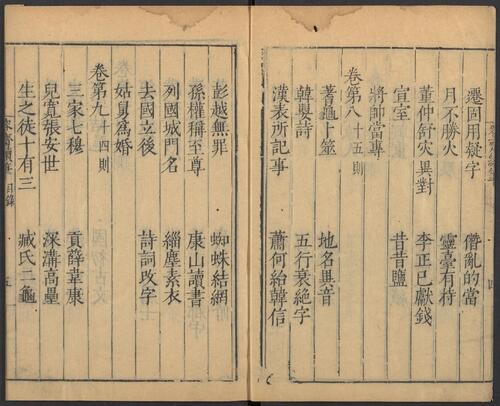 遷固用疑字 僭亂的當
月不勝火 靈臺有持
董仲舒災異對 李正己獻錢
宣室 昔昔鹽
將帥當專
卷第八 十五則
蓍龜卜筮 地名異音
韓嬰詩 五行衰絶字
漢表所記事 蕭何紿韓信
彭越無罪 蜘蛛結網
孫權稱至尊 康山讀書
列國城門名 緇塵素衣
去國立後 詩詞改字
姑舅爲婚
卷第九 十四則
三家七穆 貢薛韋康
兒寬張安世 深溝高壘
生之徒十有三 臧氏二龜
容齋續筆 目錄 五